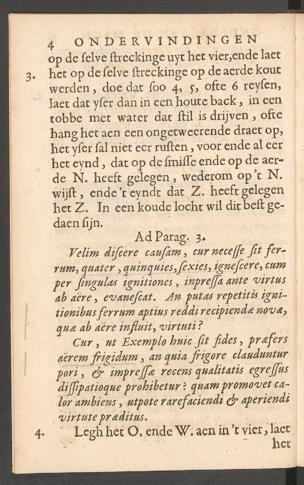 4 ONDERVINDINGEN
op de selve streckinge uyt het vier,ende laet
3. het op de selve streckinge op de aerde kout
werden, doe dat soo 4, 5, ofte 6 reysen,
laet dat yser dan in een houte back, in een
tobbe met water dat stil is drijven, ofte
hang het aen een ongetweerende draet op,
het yser sal niet eer rusten, voor ende al eer
het eynd, dat op de smisse ende op de aer-
de N. heeft gelegen, wederom op't N.
wijst, ende't eyndt dat Z. heeft gelegen
het Z. In een koude locht wil dit best ge-
daen sijn.
Ad Parag. 3.
Velim discere causam, cur necesse sit fer-
rum, quater, quinquies, sexies, ignescere, cum
per singulas ignitiones, inpressa ante virtus
ab aëre, evanescat. An putas repetitis igni-
tionibus ferrum aptius reddi recipiendæ novæ,
quæ ab aëre influit, virtuti?
Cur, ut Exemplo huic sit fides, præfers
aërem frigidum, an quia frigore clauduntur
pori, & impressæ recens qualitatis egressus
dissipatioque prohibetur? quam promovet ca-
lor ambiens, utpote rarefaciendi & aperiendi
virtute præditus.
4. Legh het O. ende W. aen in 't vier, laet
het